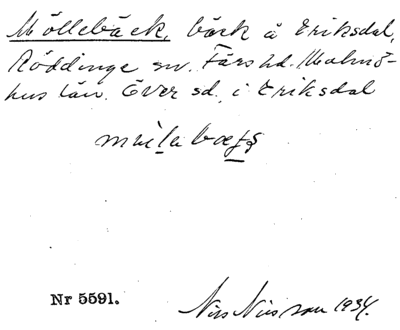 Möllebäck, bäck å Eriksdal,
Röddinge sn. Färs hd. Malmö-
hus län. Över sd. i Eriksdal
Nr 5591. Nils Nilsson 1934.